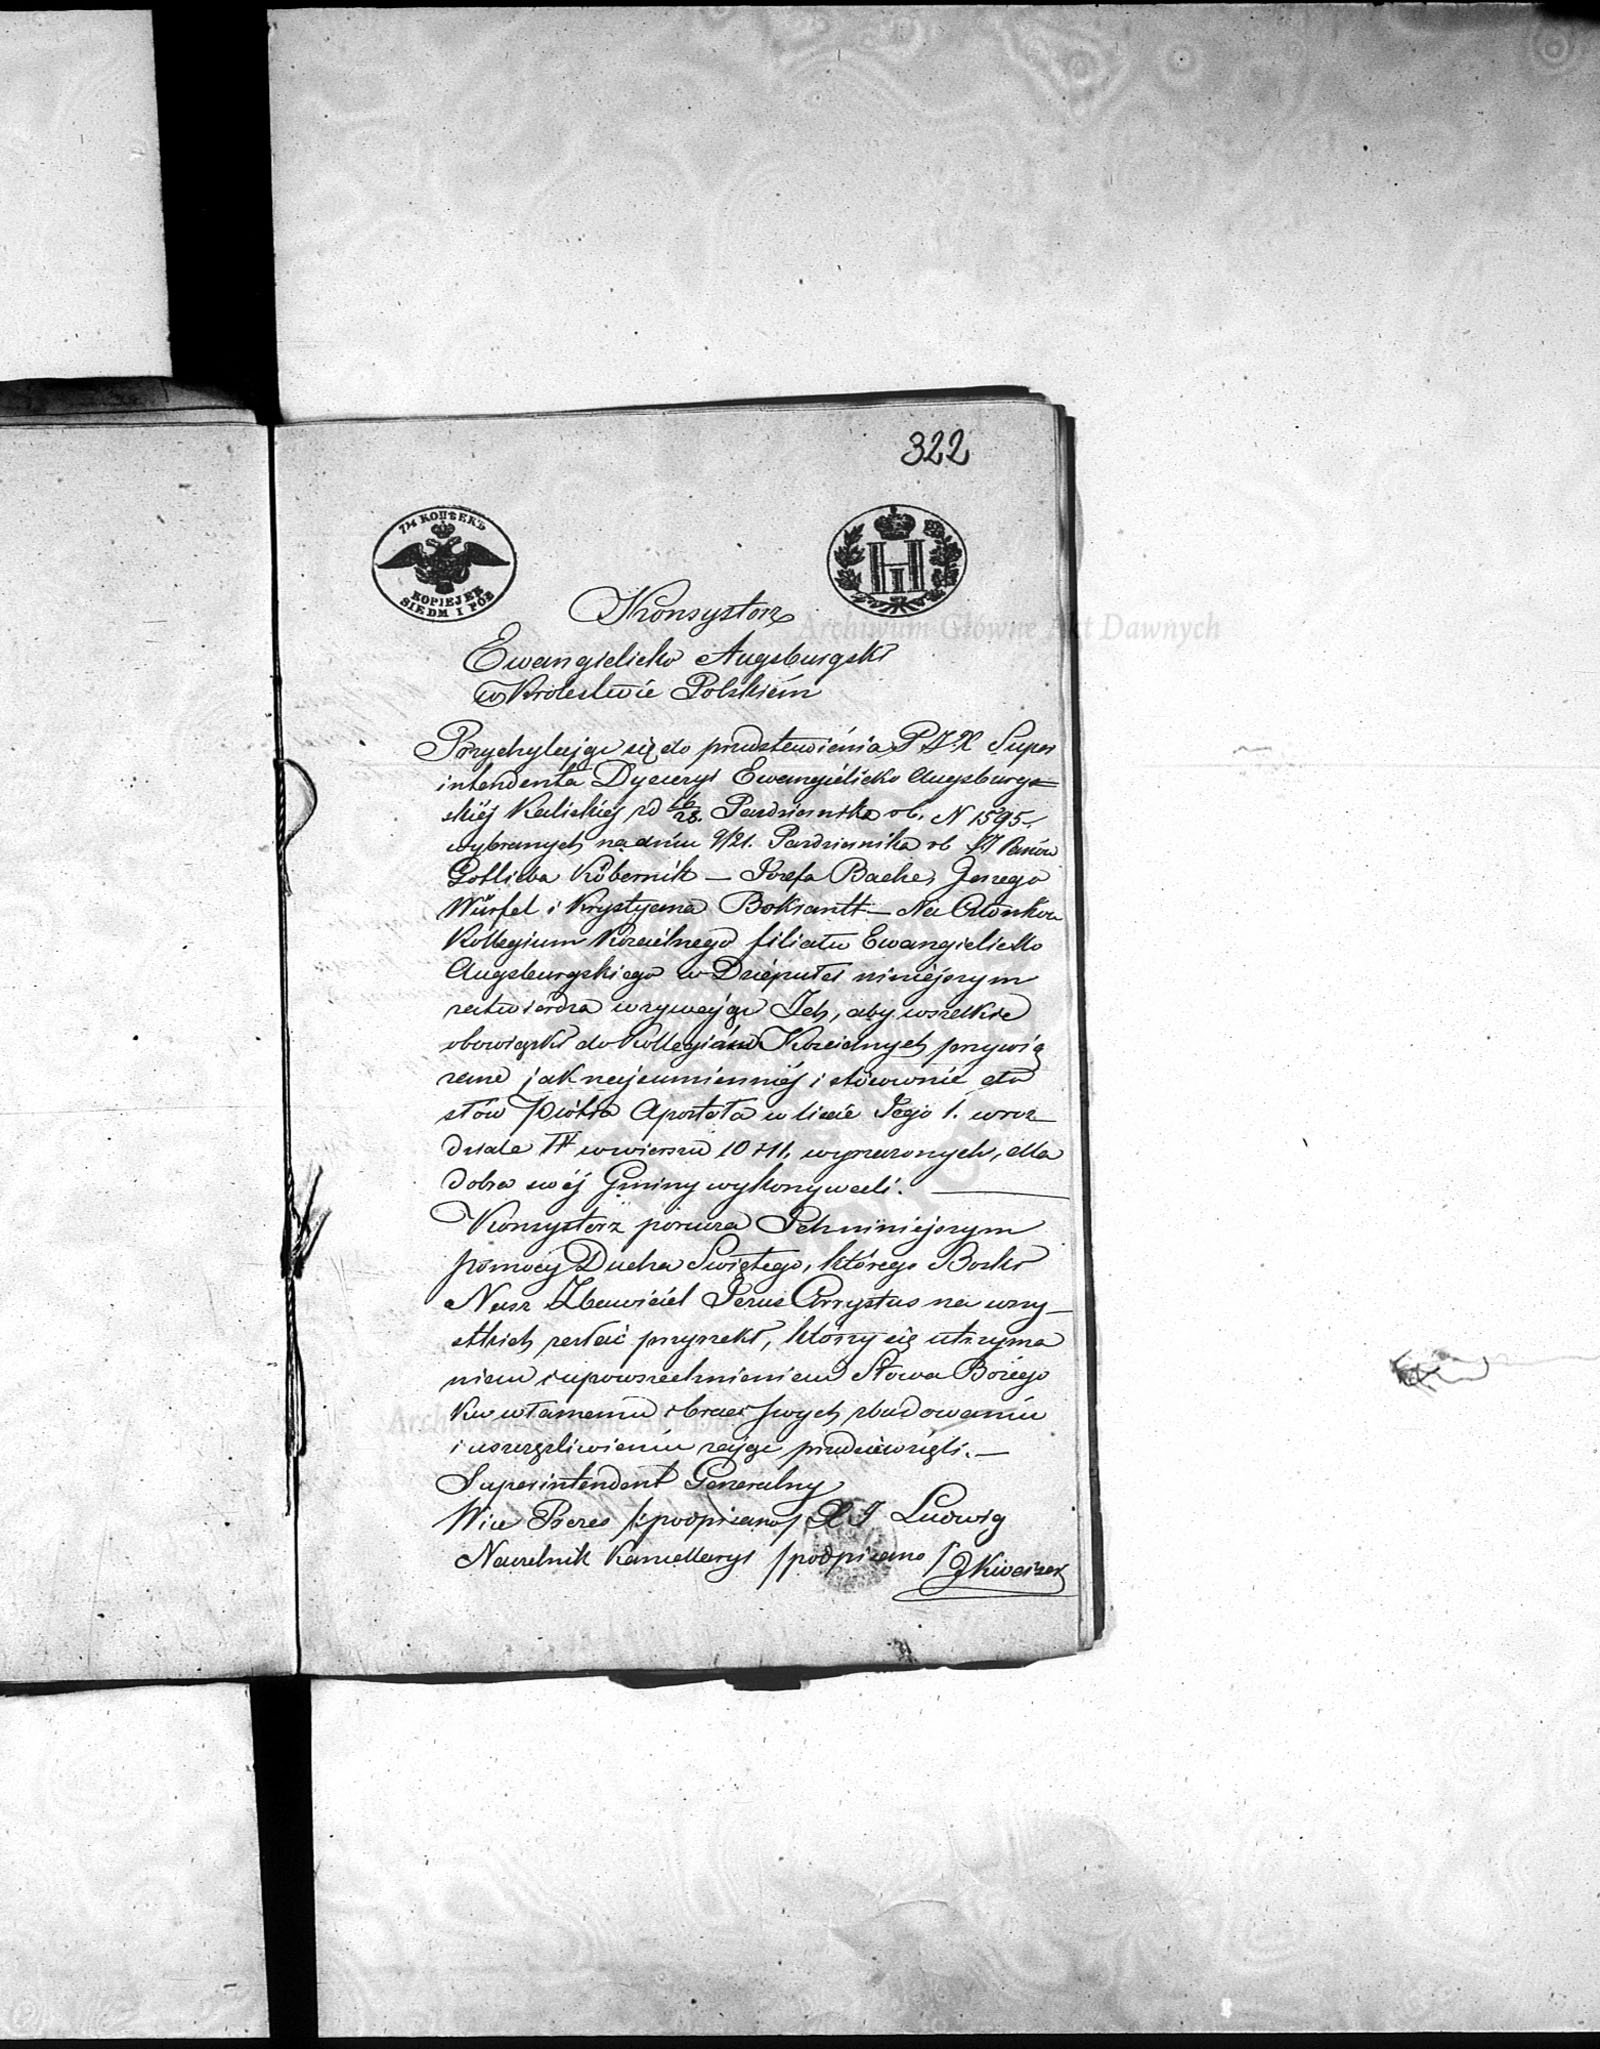 322
7½ КОПѢЕКЪ
KOPIJEEK
SIEDM I PÓŁ
Н I
Konsystorz
Ewangielicko Augsburgski
w Krolestwie Polskiém
Przychylając się do przedstawienia P J X Super
intendenta Dyecezyi Ewangielicko Augsburg=
skiéj Kaliskiéj zd 16/28. Pazdziernika rb. N 1595.
wybranych na dniu 9/21. Pazdziernika rb Panów
Gottlieba Köbernik – Jozefa Bache, Jerzego
Würfel i Krystyana Boksantt – Na Członków
Kollegium Kościelnego filiału Ewangielicko
Augsburgskiego w Dziepułci niniejszym
zatwierdza wzywając Ich, aby wszelkie
obowiązki do Kollegiów Kościelnych przywią
zane jak najsumienniéj i stósownie do
słów Piotra Apostoła w liście Jego 1. w roz-
dziale IV w wierszu 10 i 11. wyrażonych, dla
dobra swéj Gminy wykonywali. —
Konsystorz porucza Ich niniejszym
pomocy Ducha Swiętego, którego Boski
Nasz Zbawiciel Jezus Chrystus na wszy-
stkich zesłać przyrzekł, którzy się utrzyma
niem i upowszechnieniem Słowa Bożego
ku własnemu i braci swych zbudowaniu
i uszczęśliwieniu zająć przedsięwzięli. —
Superintendent Generalny
Wice Prezes /podpisano/ X J Ludwig
Naczelnik Kancellaryi /podpisano/ J Kweiser
Archiwum Główne Akt Dawnych